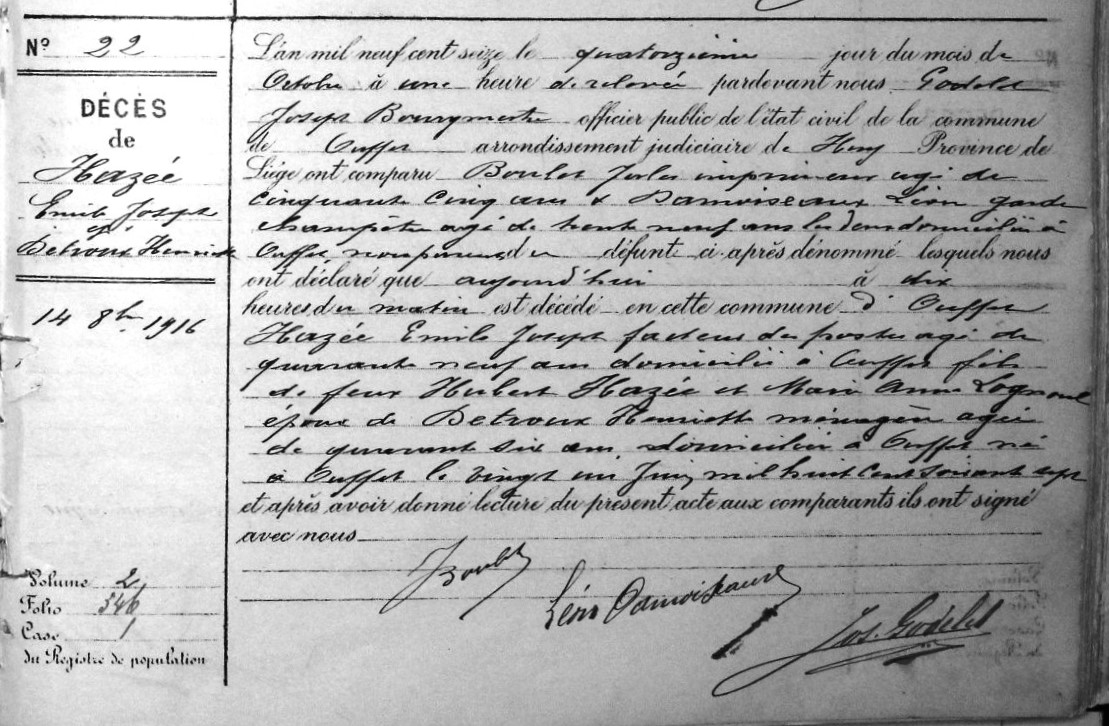 Nº 22
DÉCÈS
de
Hazée
Emile Joseph
ép
Detroux Henriette
14 8bre 1916
Volume 2
Folio 546
Case 1
du Registre de population
L'an mil neuf cent seize le quatorzième jour du mois de
Octobre à une heure de relevée pardevant nous Godelet
Joseph Bourgmestre officier public de l'état civil de la commune
de Ouffet arrondissement judiciaire de Huy Province de
Liége ont comparu Boulet Jules imprimeur agé de
cinquante cinq ans & Damoiseaux Léon garde
champêtre agé de trente neuf ans les deux domiciliés à
Ouffet, non parents du défunt ci-après dénommé lesquels nous
ont déclaré que aujourd'hui à dix
heures du matin est décédé en cette commune d' Ouffet
Hazée Emile Joseph facteur des postes agé de
quarante neuf ans domicilié à Ouffet fils
de feux Hubert Hazée et Marie Anne Lognoul
époux de Detroux Henriette ménagère agée
de quarante six ans, domiciliée à Ouffet né
à Ouffet le vingt un Juin mil huit cent soixante sept
et après avoir donné lecture du présent acte aux comparants ils ont signé
avec nous
JBoulet
Léon Damoiseaux
Jos. Godelet